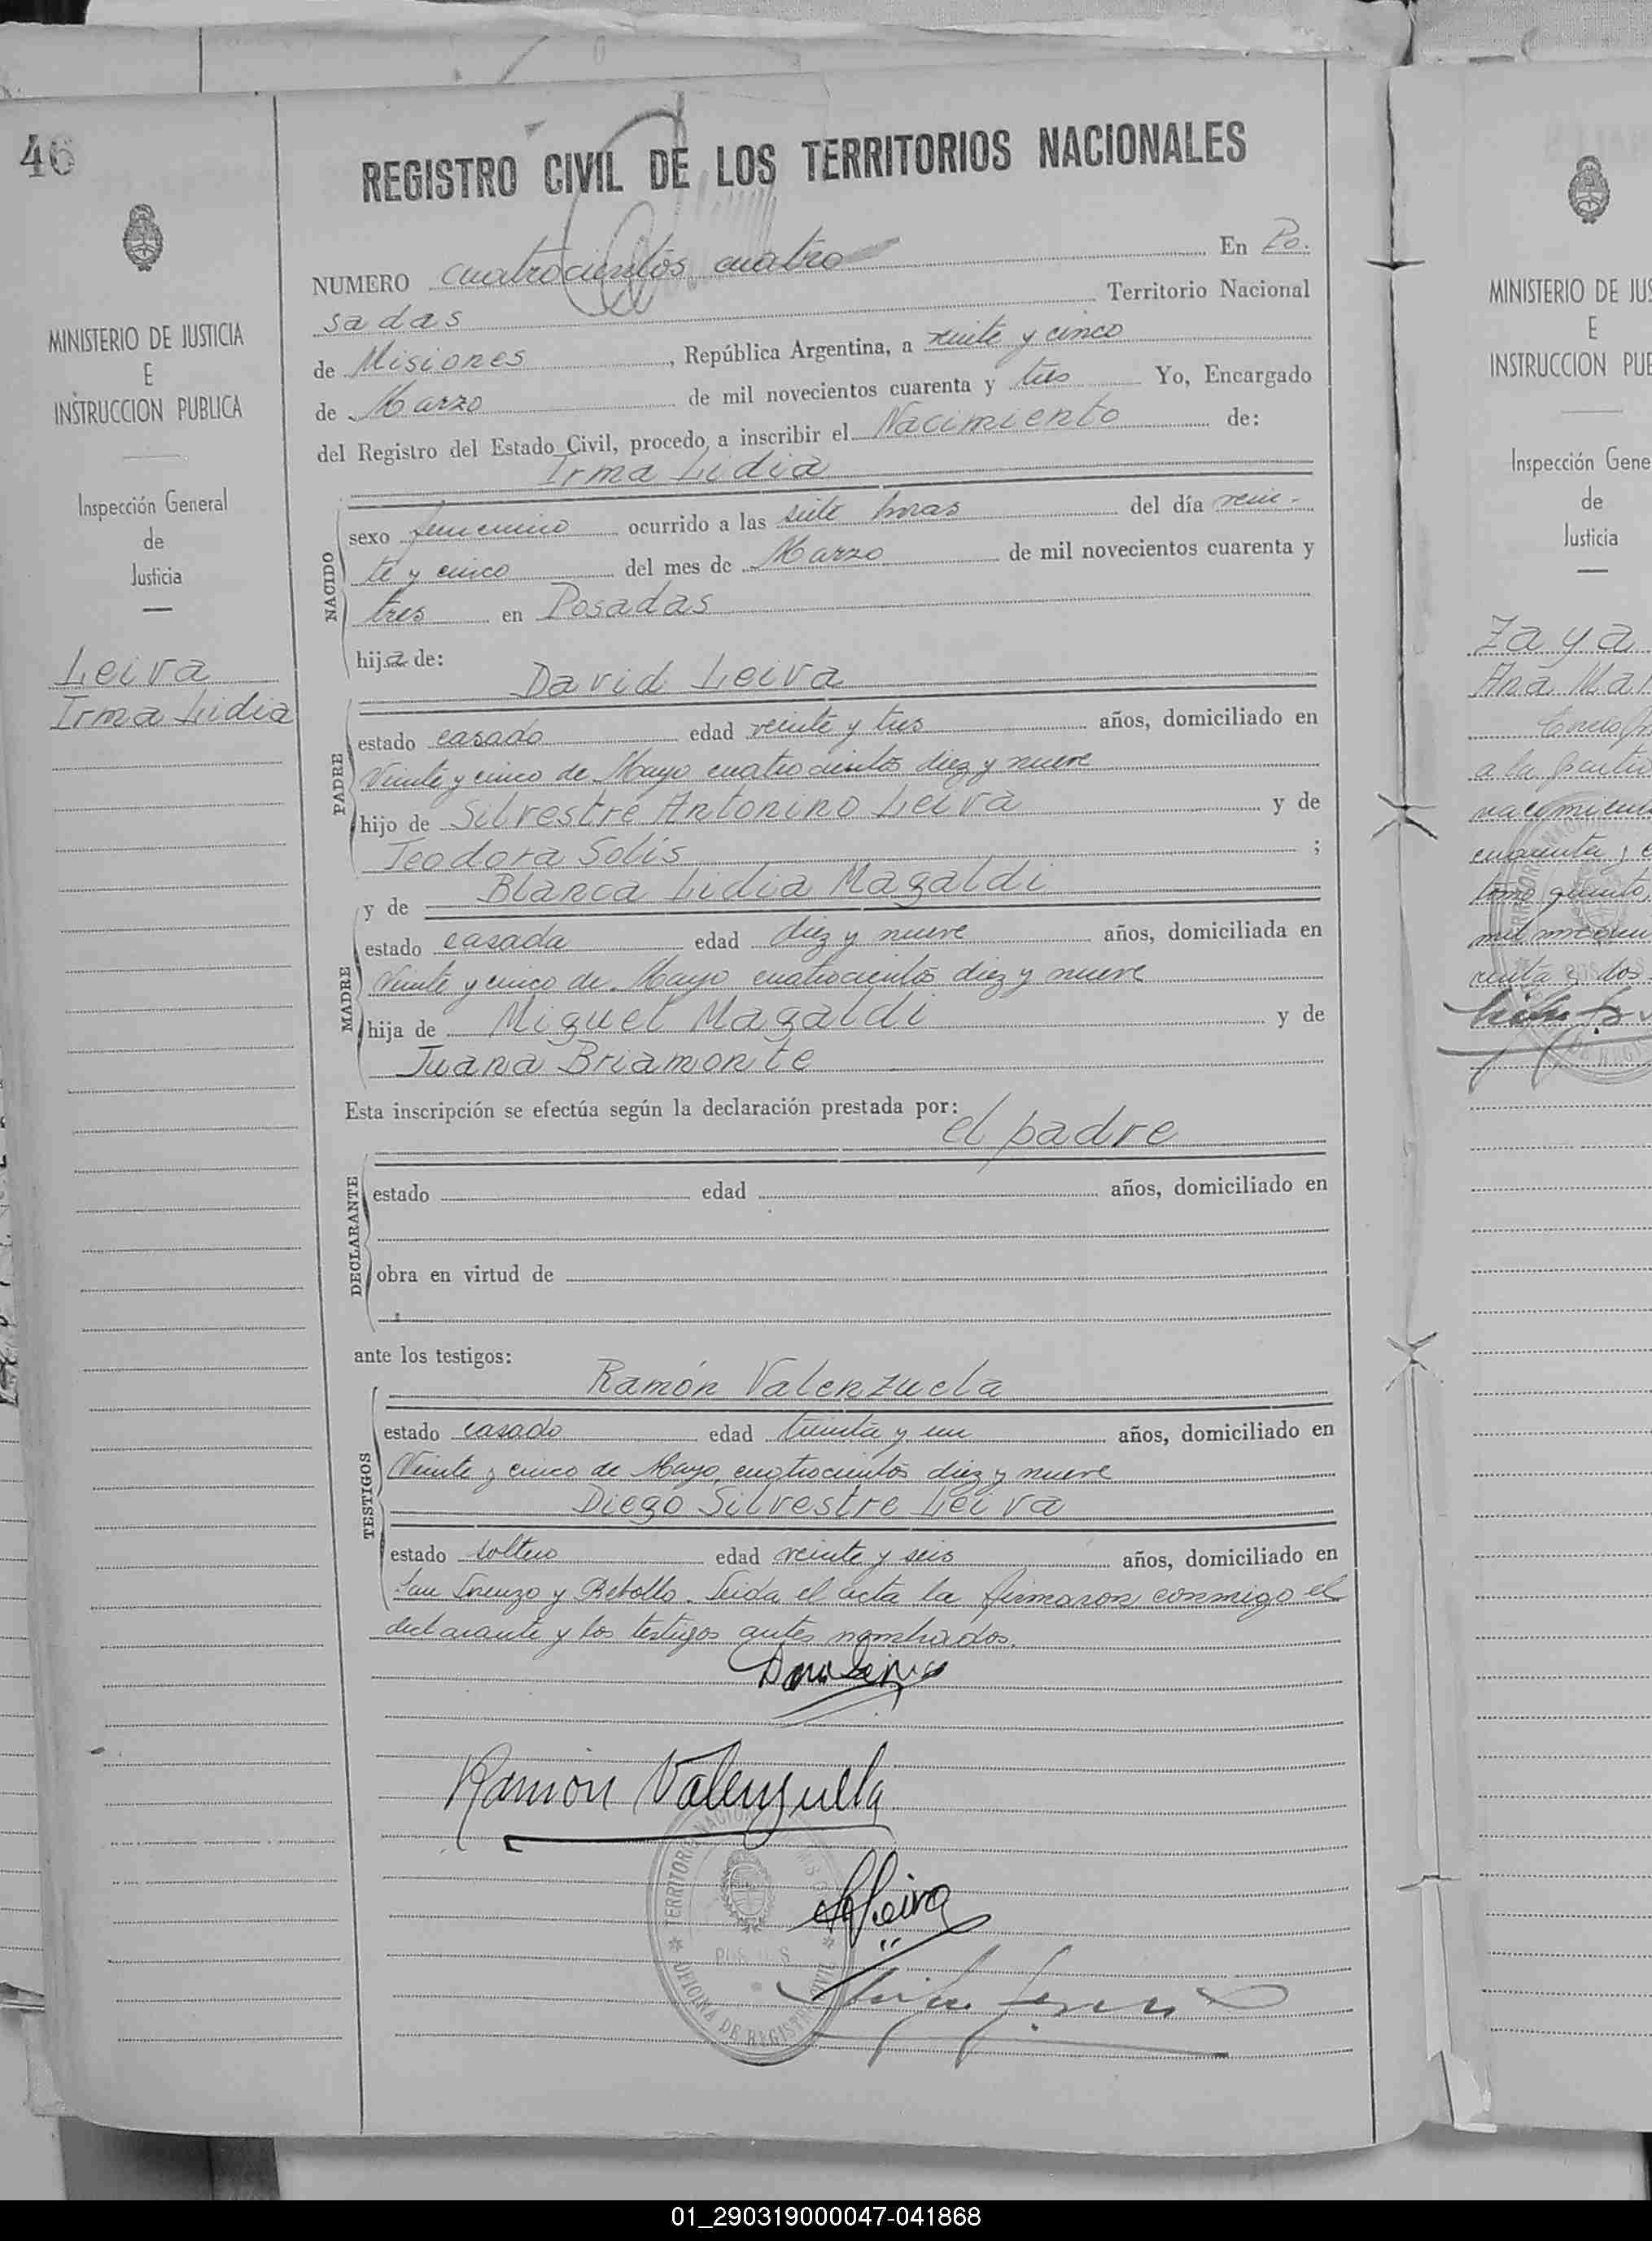 46
MINISTERIO DE JUSTICIA
E
INSTRUCCION PUBLICA
Inspección General
de
Justicia
Leiva
Irma Lidia
REGISTRO CIVIL DE LOS TERRITORIOS NACIONALES
NUMERO cuatrocientos cuatro En Po.
sadas Territorio Nacional
de Misiones, República Argentina, a veinte y cinco
de Marzo de mil novecientos cuarenta y tres Yo, Encargado
del Registro del Estado Civil, procedo a inscribir el Nacimiento de:
Irma Lidia
NACIDO
sexo femenino ocurrido a las siete horas del día vein-
te y cinco del mes de Marzo de mil novecientos cuarenta y
tres en Posadas
hija de:
David Leiva
PADRE
estado casado edad veinte y tres años, domiciliado en
Veinte y cinco de Mayo cuatrocientos diez y nueve
hijo de Silvestre Antonino Leiva y de
Teodora Solís ;
y de Blanca Lidia Magaldi
MADRE
estado casada edad diez y nueve años, domiciliada en
Veinte y cinco de Mayo cuatrocientos diez y nueve
hija de Miguel Magaldi y de
Juana Briamonte
Esta inscripción se efectúa según la declaración prestada por:
el padre
DECLARANTE
estado edad años, domiciliado en
obra en virtud de
ante los testigos:
Ramón Valenzuela
TESTIGOS
estado casado edad treinta y un años, domiciliado en
Veinte y cinco de Mayo, cuatrocientos diez y nueve
Diego Silvestre Leiva
estado soltero edad veinte y seis años, domiciliado en
San Lorenzo y Rebollo. Leida el acta la firmaron conmigo el
declarante y los testigos antes nombrados.
Ramón Valenzuela
Leiva
TERRITORIO NACIONAL
POSADAS
OFICINA DE REGISTRO CIVIL
MINISTERIO DE JUS
E
INSTRUCCION PUB
Inspección Gene
de
Justicia
Zaya
Ana Mar
a la partid
nacimient
cuarenta y
tomo quinto,
01_290319000047-041868